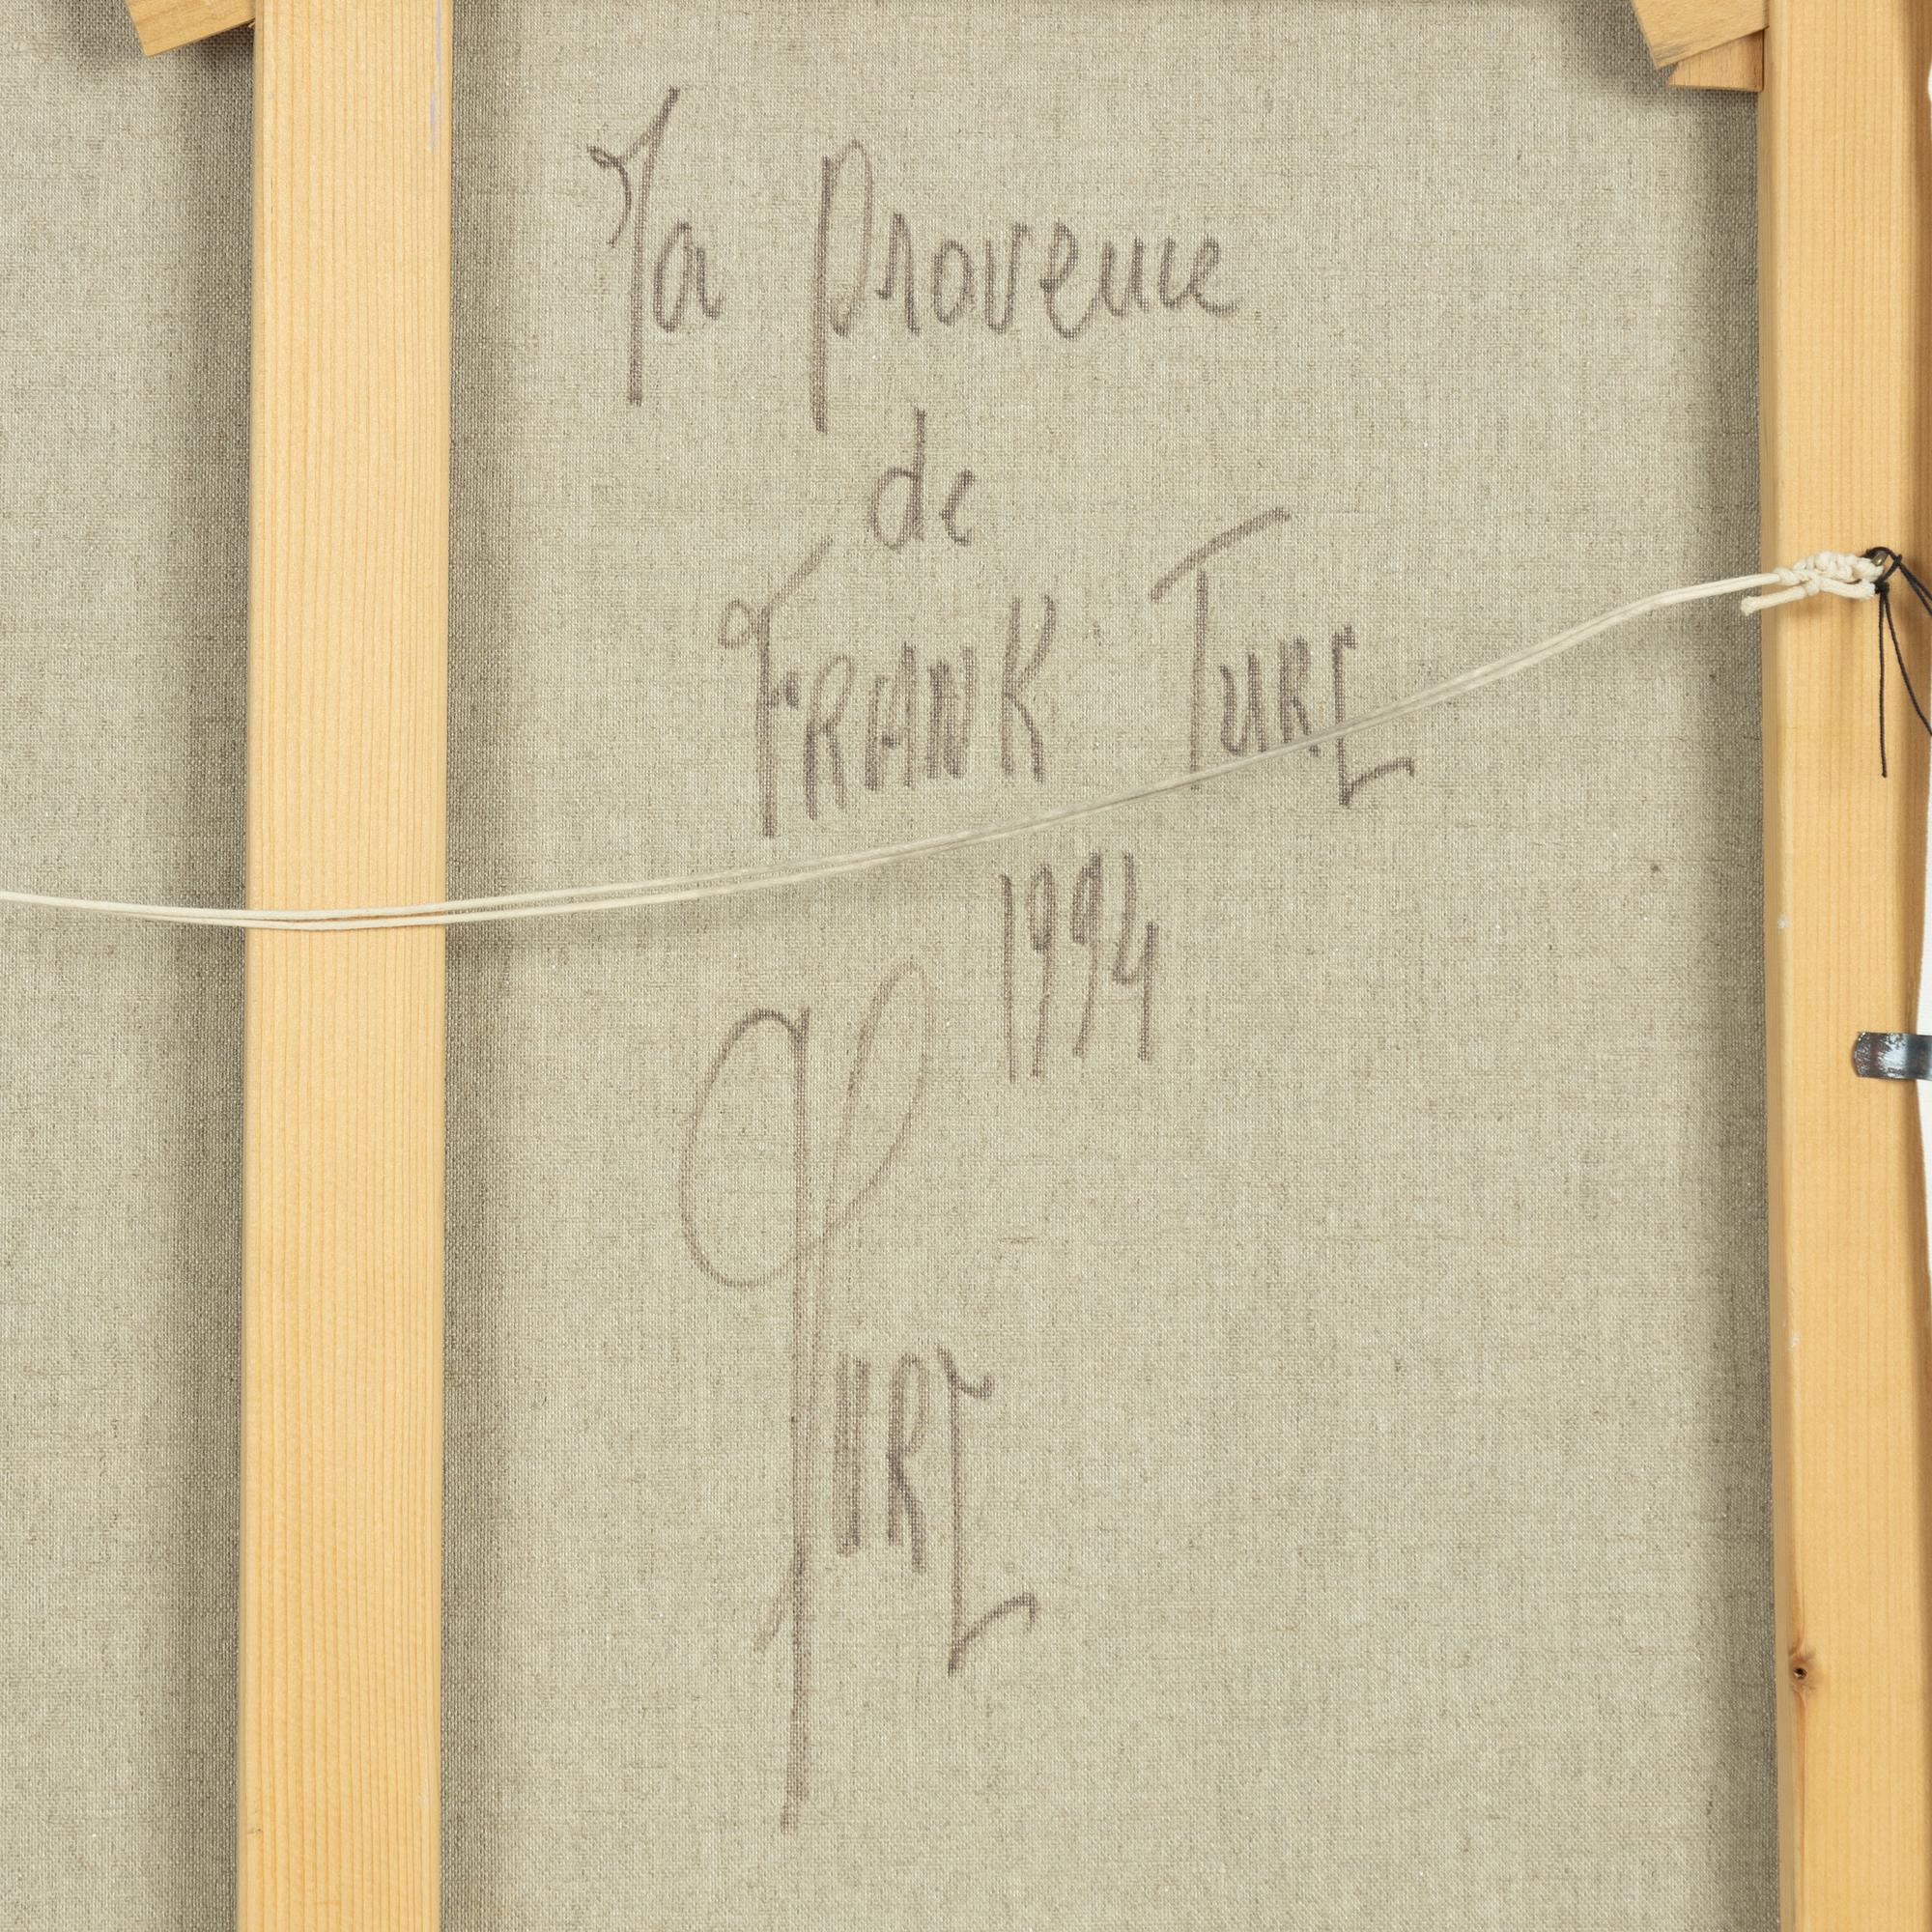 Ma Provence
de
FRANK TURC
1994
TURC